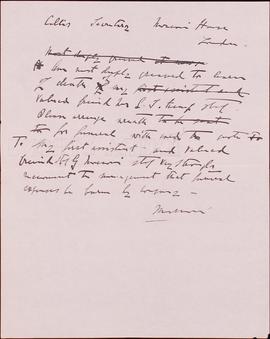 Secretary Marconi House
London
Most deeply grieved at
Am most deeply grieved to learn
of death of my first assistant and
valued friend G. S. Kemp stop
Please arrange wreath to be sent
to for funeral with words quote
To my first assistant and valued
friend G Marconi stop
to management that funeral
expenses be borne by company
Marconi